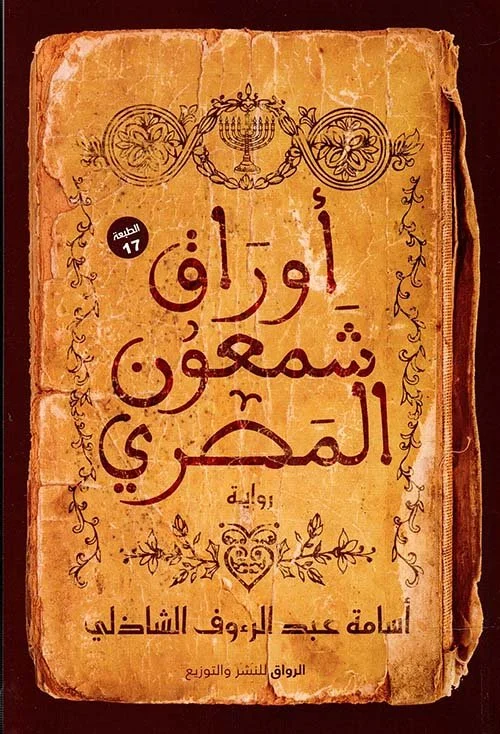 الطبعة
17
أورَاق
شمعُون
المَصري
رواية
أسامة عبد الرءوف الشاذلي
الرواق للنشر والتوزيع